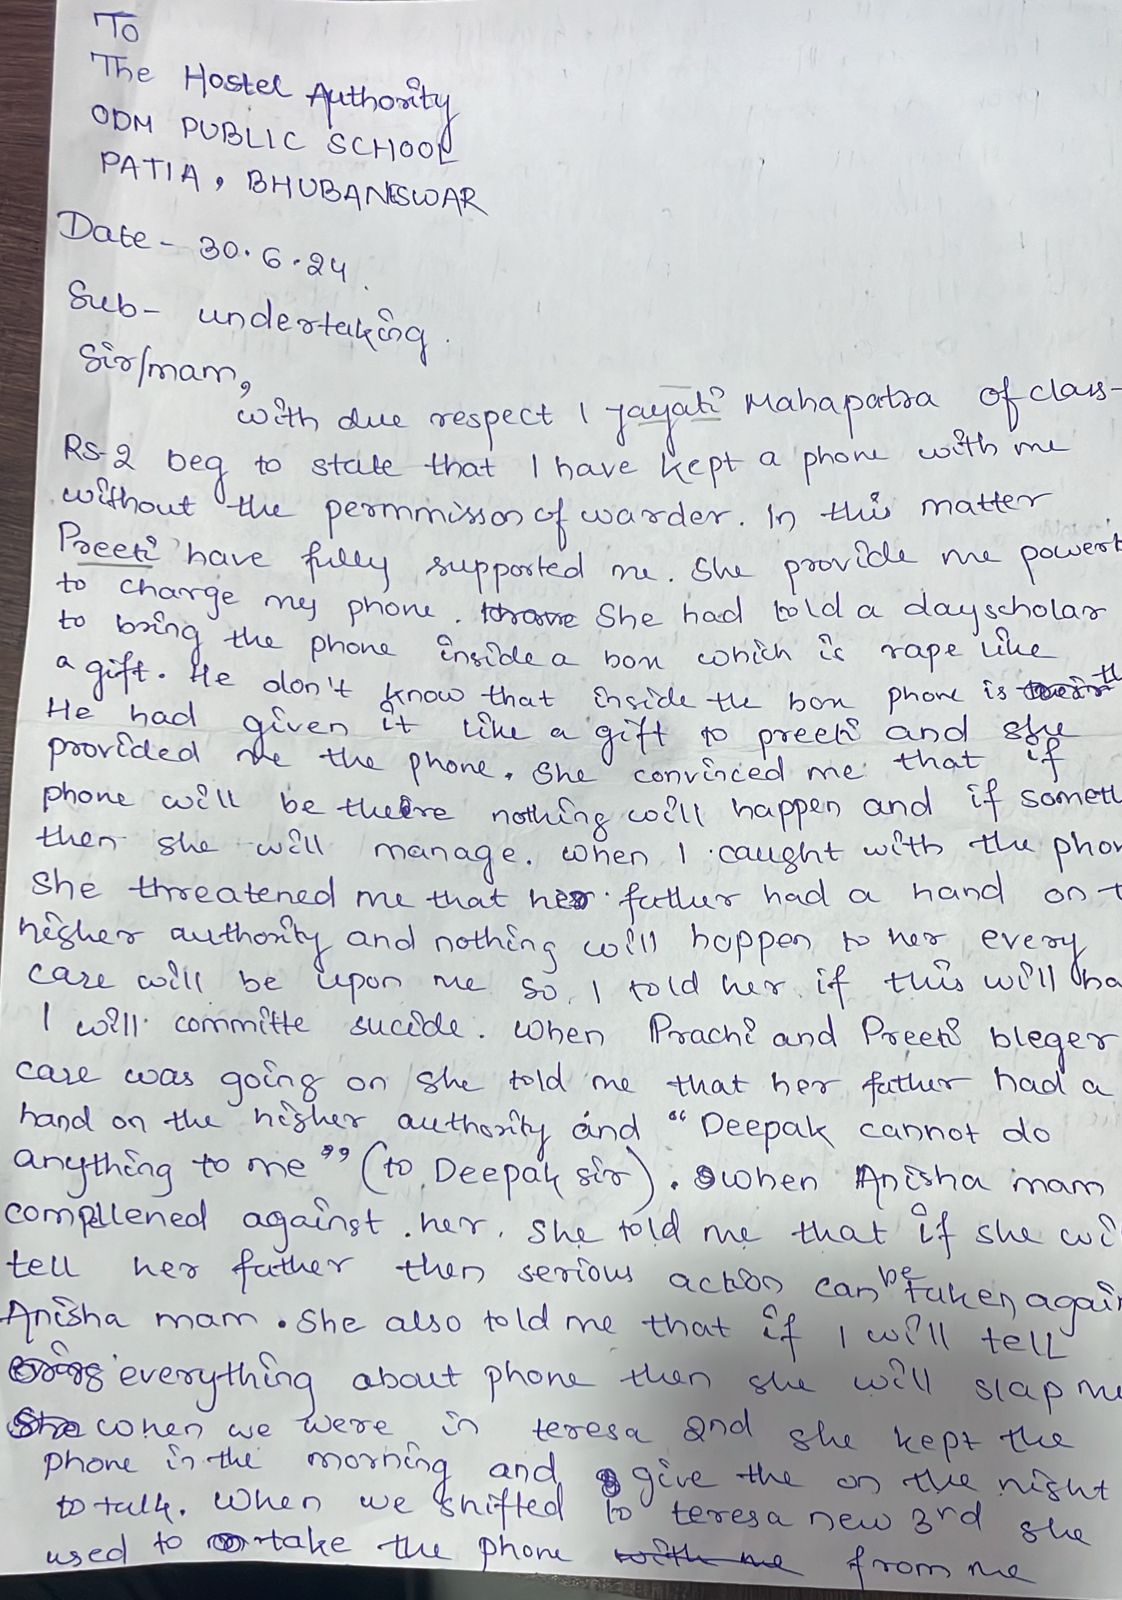 To
The Hostel Authority
ODM PUBLIC SCHOOL
PATIA, BHUBANESWAR
Date - 30.6.24
Sub- undertaking.
Sir/mam,
with due respect I Jayati Mahapatra of class-
RS-2 beg to state that I have kept a phone with me
without the permmisson of warder. In this matter
Preeti have fully supported me. She provide me powerb
to charge my phone. She had told a dayscholar
to bring the phone inside a box which is rape like
a gift. He don't know that inside the box phone is th
He had given it like a gift to preeti and she
provided me the phone. She convinced me that if
phone will be there nothing will happen and if someth
then she will manage. When I caught with the phon
She threatened me that her father had a hand on t
higher authority and nothing will happen to her every
case will be upon me so I told her if this will ha
I will committe sucide. When Prachi and Preeti bleger
case was going on she told me that her father had a
hand on the higher authority and "Deepak cannot do
anything to me" (to Deepak sir). when Anisha mam
compllened against her. She told me that if she wi
tell her father then serious action can be taken again
Anisha mam. She also told me that if I will tell
everything about phone then she will slap me
when we were in teresa 2nd she kept the
phone in the morning and give the on the night
to talk. When we shifted to teresa new 3rd she
used to take the phone from me